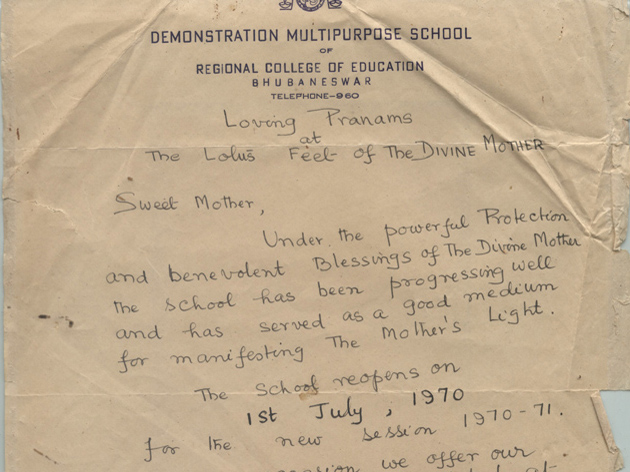 DEMONSTRATION MULTIPURPOSE SCHOOL
OF
REGIONAL COLLEGE OF EDUCATION
BHUBANESWAR
TELEPHONE-960
Loving Pranams
at
The Lotus Feet of The DIVINE MOTHER
Sweet Mother,
Under the powerful Protection
and benevolent Blessings of The Divine Mother
the school has been progressing well
and has served as a good medium
for manifesting The Mother's Light.
The School reopens on
1st July, 1970
for the new session 1970-71.
we offer our